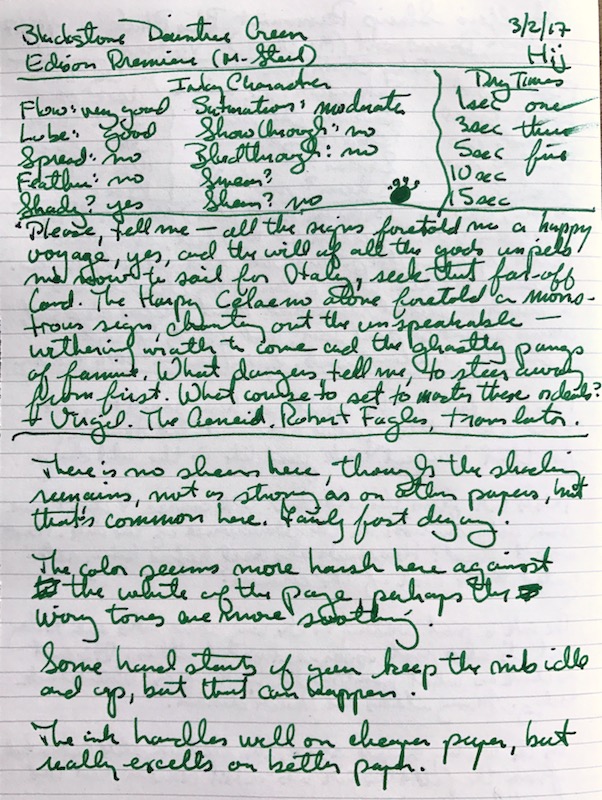 Blackstone Daintree Green 3/2/17
Edison Premiere (M-Steel) Hij
Inky Character Dry Times
Flow: very good Saturation: moderate 1sec one
Lube: good Show through: no 3sec three
Spread: no Bleedthrough: no 5sec five
Feather: no Smear? 10sec
Shady? yes Sheen? no 15sec
"Please, tell me — all the signs foretold me a happy
voyage, yes, and the will of all the gods impels
me now to sail for Italy, seek that far-off
land. The Harpy Celaeno alone foretold a mons-
trous sign, chanting out the unspeakable —
withering wrath to come and the ghastly pangs
of famine. What dangers tell me, to steer away
from first. What course to set to master these ordeals?
- Virgil. The Aeneid. Robert Fagles, translator.
There is no sheen here, though the shading
remains, not as strong as on other papers, but
that's common here. Fairly fast drying.
The color seems more harsh here against
the white of the page, perhaps the
ivory tones are more soothing.
Some hard starts if you keep the nib idle
and up, but that can happen.
The ink handles well on cheaper paper, but
really excells on better paper.